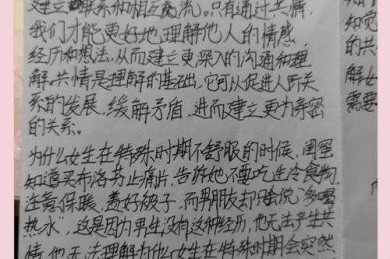 建立联系和相互交流。只有通过共情，
我们才能更好地理解他人的情感、
经历和想法，从而建立更深入的沟通和理
解。共情是理解的基础，它可从促进人际关
系的发展，缓解矛盾，进而建立更为亲密
的关系。
为什么女生在特殊时期不舒服的时候，闺蜜
知道买布洛芬止痛片，告诉她不要吃生冷食物，
注意保暖，盖好被子，而男朋友却只会说“多喝
热水”，这是因为男生没有这种经历，他无法产生共
情，他无法理解为什么女生在特殊时期会突然
知觉
的共
解女
需要